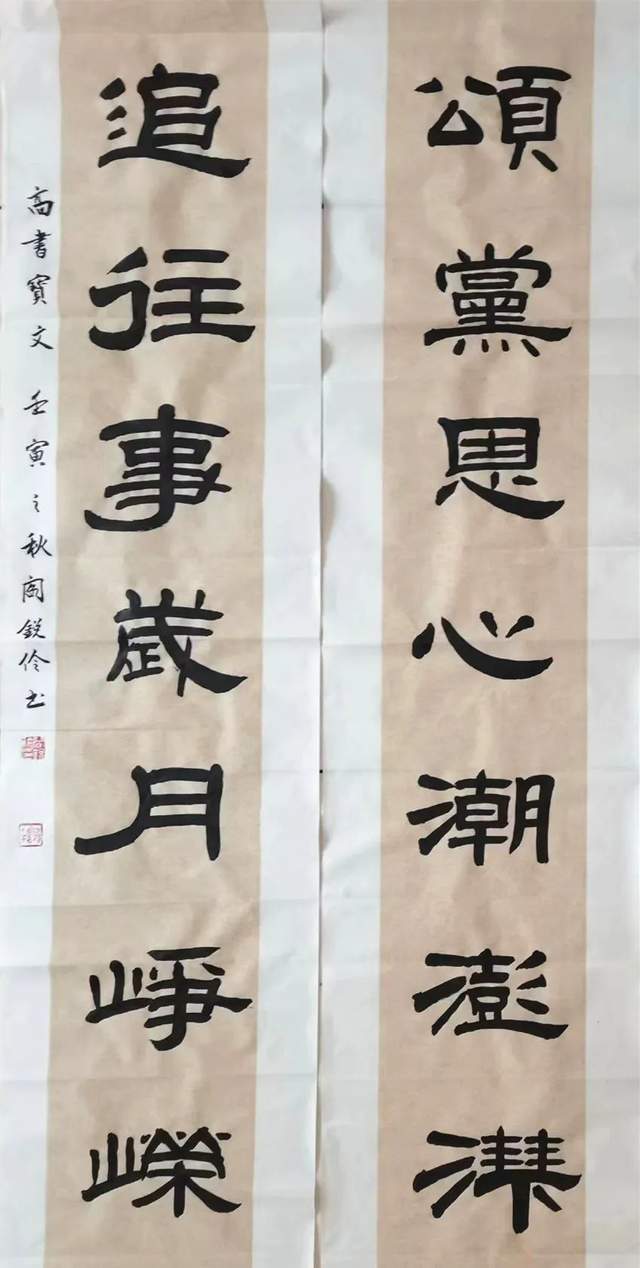 頌黨思心潮澎湃
追往事歲月崢嶸
高書寶文 壬寅之秋 銳伶书